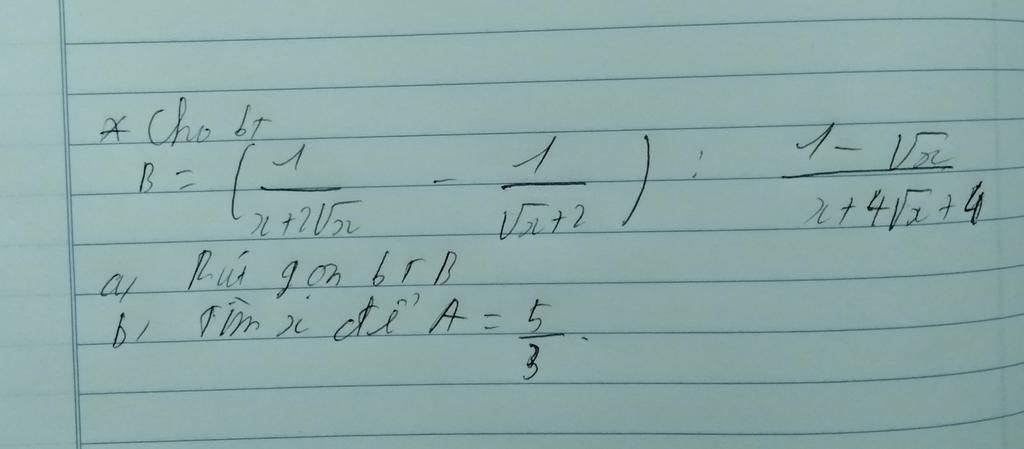 * Cho bt
B = ( 1/(x+2√x) - 1/(√x+2) ) : (1-√x)/(x+4√x+4)
a, Rút gọn bt B
b, Tìm x để A = 5/3.